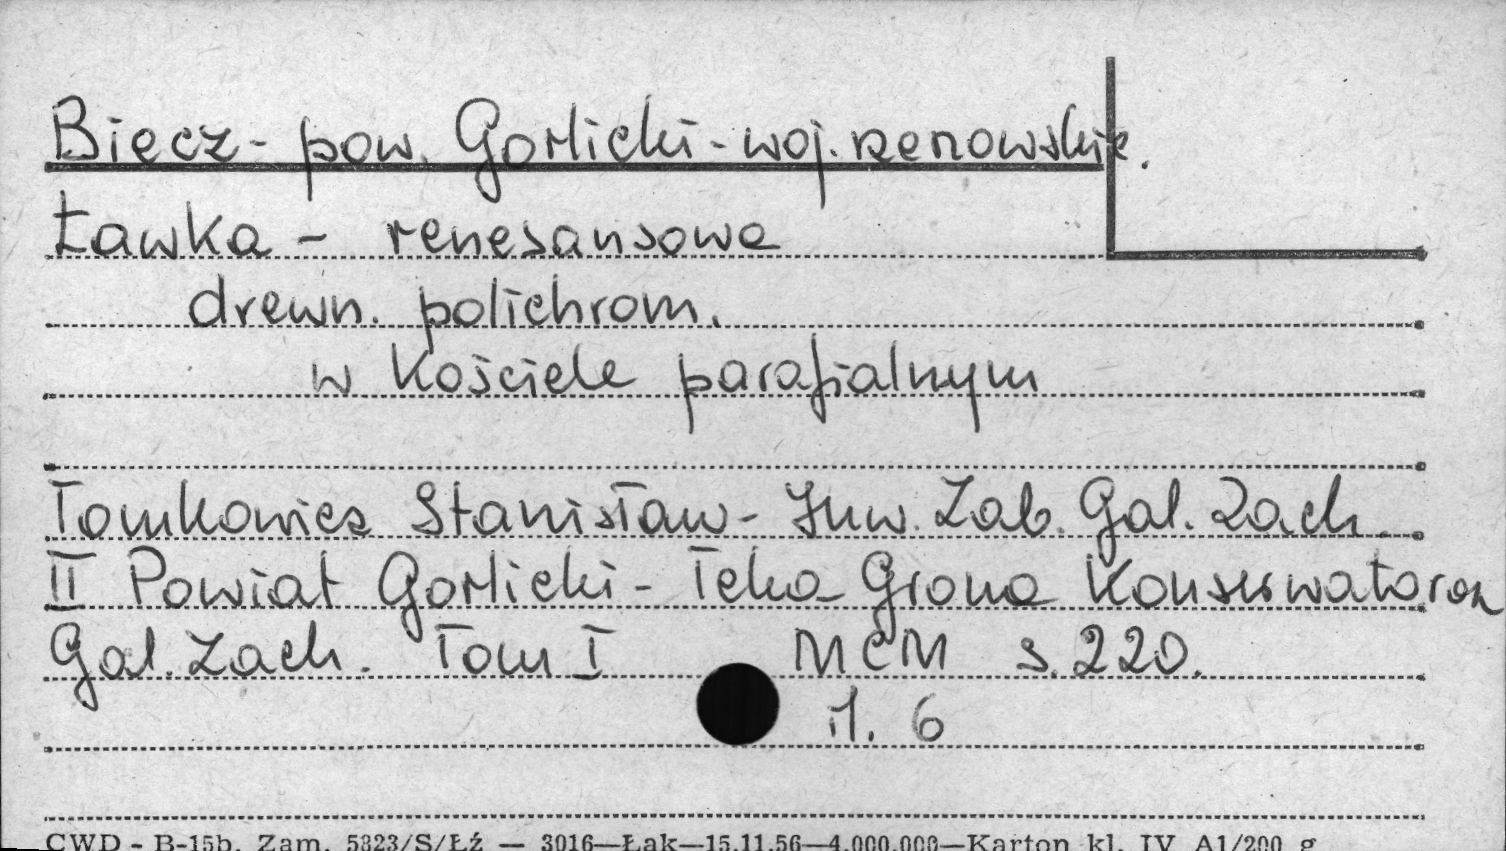 Biecz - pow. Gorlicki - woj. rzeszowskie.
Ławka - renesansowa
drewn. polichrom.
w Kościele parafialnym
Tomkowicz Stanisław - Inw. Zab. Gal. Zach.
II Powiat Gorlicki - Teka Grona Konserwatorów
Gal. Zach. Tom I MCM s. 220.
il. 6
CWD - B-15b. Zam. 5323/S/ŁŹ — 3016—Łąk—15.11.56—4.000.000—Karton kl. IV A1/200 g